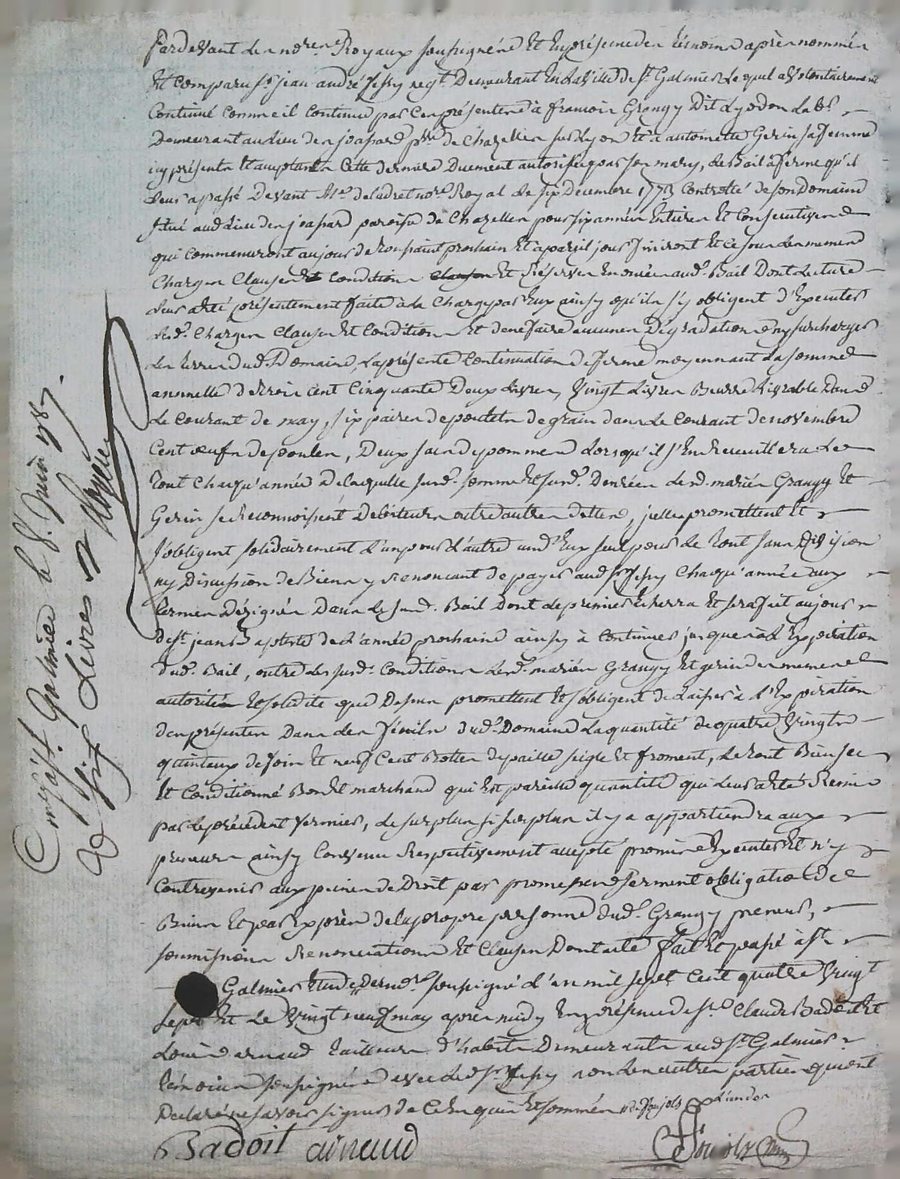 Pardevant les no.res Royaux soussignés Et En présence des témoins après nommés
Est comparu s.r jean andré negt. Demeurant En la ville de st. Galmier Lequel a volontairement
Continué comme il continue par ces présentes à francois Grangy Dit Lyodon Lab.r
Demeurant au lieu de paroisse de Chazelles sur Lyon et à antoinette Gerin sa femme
icy présents Et acceptants Cette derniere Duement autorisée par son mary, Le Bail à ferme qu'il
Leur a passé Devant Me. no.re Royal le six Décembre 177 Controllé de son Domaine
situé aud. Lieu de paroisse de Chazelles pour six années Entieres Et Consecutives
qui Commenceront au jour de toussaint prochain Et à pareil jour finiront Et ce sous les memes
Charges Clauses Et Conditions Et Réserves Enoncées aud. Bail Dont Lecture
Leur a été présentement faite à la Charge par Eux ainsy qu'ils s'y obligent d'Executer
Lesd. Charges Clauses Et Conditions Et de ne faire aucunes Dégradations ny surcharges
Les terres dud. Domaine, La présente Continuation de ferme moyennant La somme
annuelle de trois Cent Cinquante Deux Livres, Vingt Livres Beurre Livrable Dans
Le Courant de may, six paires de poulets de grain dans Le Courant de novembre
Cent œufs de poules, Deux de pommes Lorsqu'il s'En Recueillera Le
tout Chaqu'année De laquelle susd. somme Et susd. Denrées Lesd. mariés Grangy Et
Gerin se Reconnoissent Debiteurs promettent Et
s'obligent solidairement L'un pour L'autre un d'Eux seul pour Le tout sans Division
ny Discussion de Biens y Renoncant de payer aud. sr. Chaqu'année aux
termes Désignés Dans Le susd. Bail Dont Le premier Echerra Et sera fait au jour
de st. jean Baptiste de L'année prochaine ainsy à Continuer jusques à L'Expiration
dud. Bail, outre Les susd. Conditions Lesd. mariés Grangy Et gerin Des memes
autorités Et solidité que Dessus promettent Et s'obligent de Laisser à L'Expiration
des présentes Dans Les fénils dud. Domaine La quantité de quatre Vingts
quintaux de foin Et neuf Cent Bottes de paille seigle Et froment, Le tout Bien sec
Et Conditionné Bon Et marchand qui Est pareille quantité qui Leur a été Remise
par Le précédent fermier, Le surplus si surplus il y a appartiendra aux
preneurs ainsy Convenu Respectivement accepté promis Executer Et n'y
Contrevenir aux peines de Droit par promesses serment obligations de
Biens Et par Exprès de La propre personne dud. Grangy preneur,
soumissions Renonciations Et Clauses Dont acte fait Et passé à st.
Galmier Etude Des no.res soussignés L'an mil sept Cent quatre Vingt
sept Et Le Vingt neuf may après midy En présence de sr. Claude Badoit Et
Louis arnaud tailleurs d'habits Demeurants aud. st. Galmier
témoins soussignés avec Led. sr. non Les autres parties qui ont
Declaré ne savoir signer de Ce Enquis Et sommés
Badoit arnaud
Con.lé à st. Galmier le 8. Juin 1787.
Rs six Livres